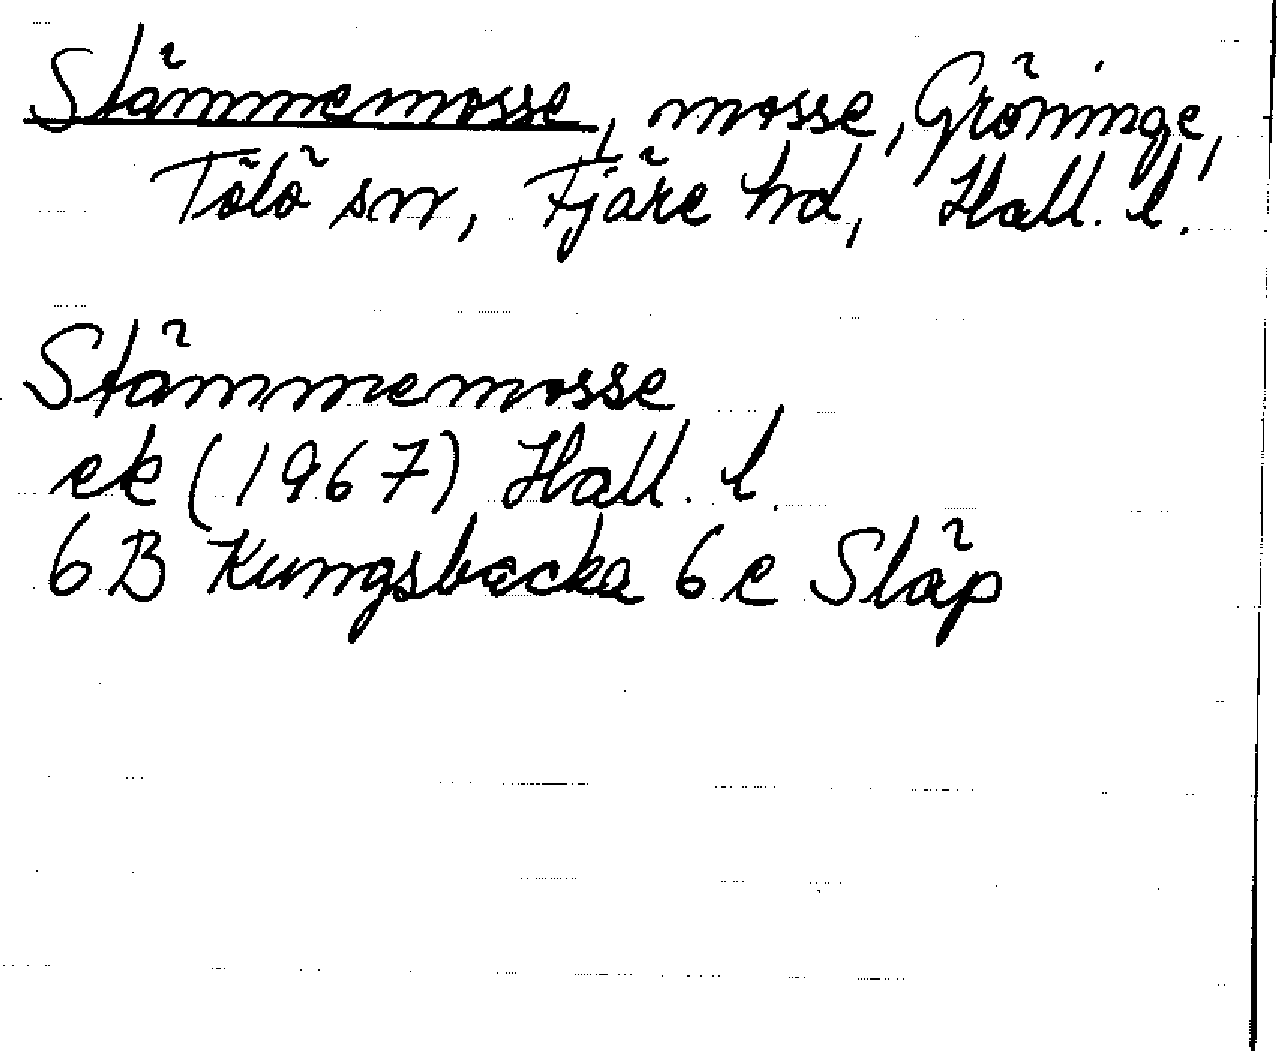 Stämmemosse, mosse, Gröninge,
Tölö sn, Fjäre hd, Hall. l.
Stämmemosse
ek (1967) Hall. l.
6B Kungsbacka 6 e Släp